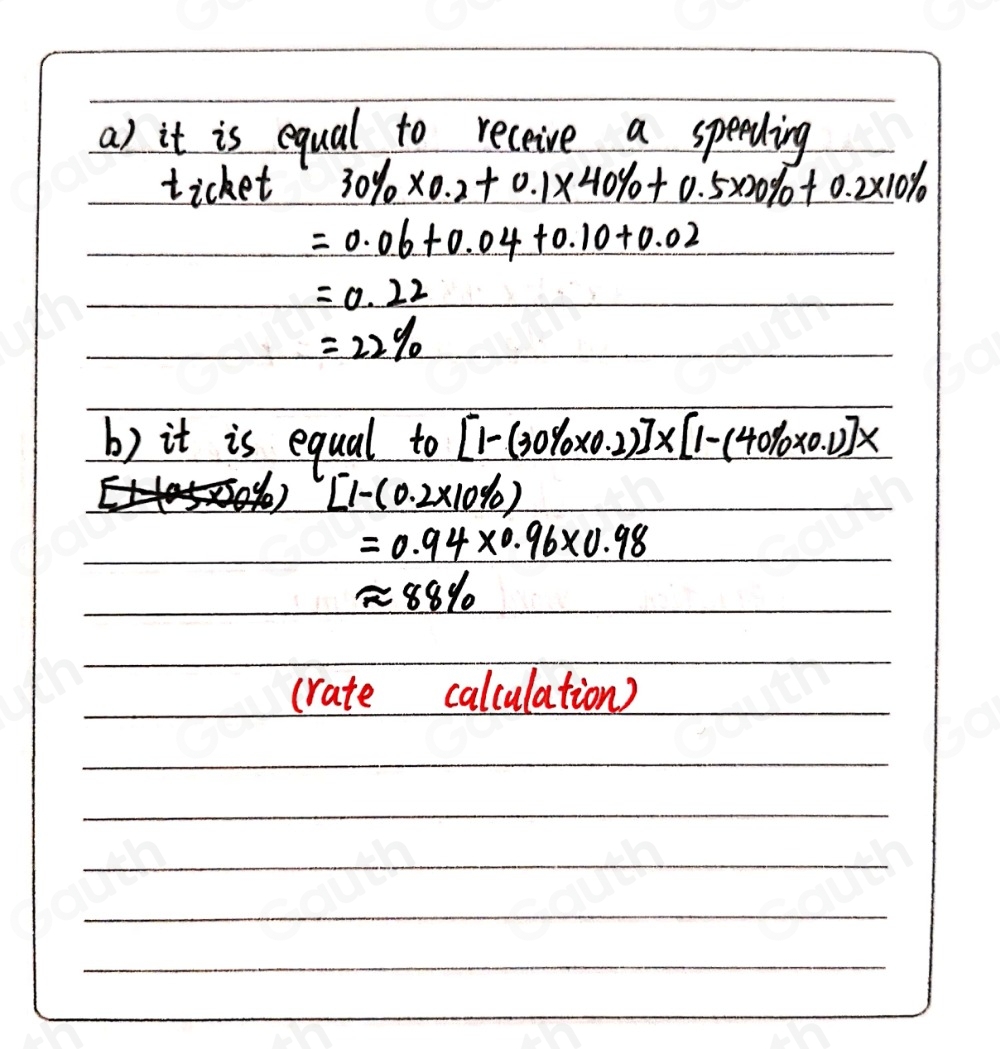 a) it is equal to receive a speeding
ticket 30% × 0.2 + 0.1 × 40% + 0.5×20% + 0.2×10%
= 0.06 + 0.04 + 0.10 + 0.02
= 0.22
= 22%
b) it is equal to [1-(30%×0.2)]×[1-(40%×0.1)]×
[1-(0.5×20%) [1-(0.2×10%)
= 0.94 × 0.96 × 0.98
≈ 88%
(rate calculation)